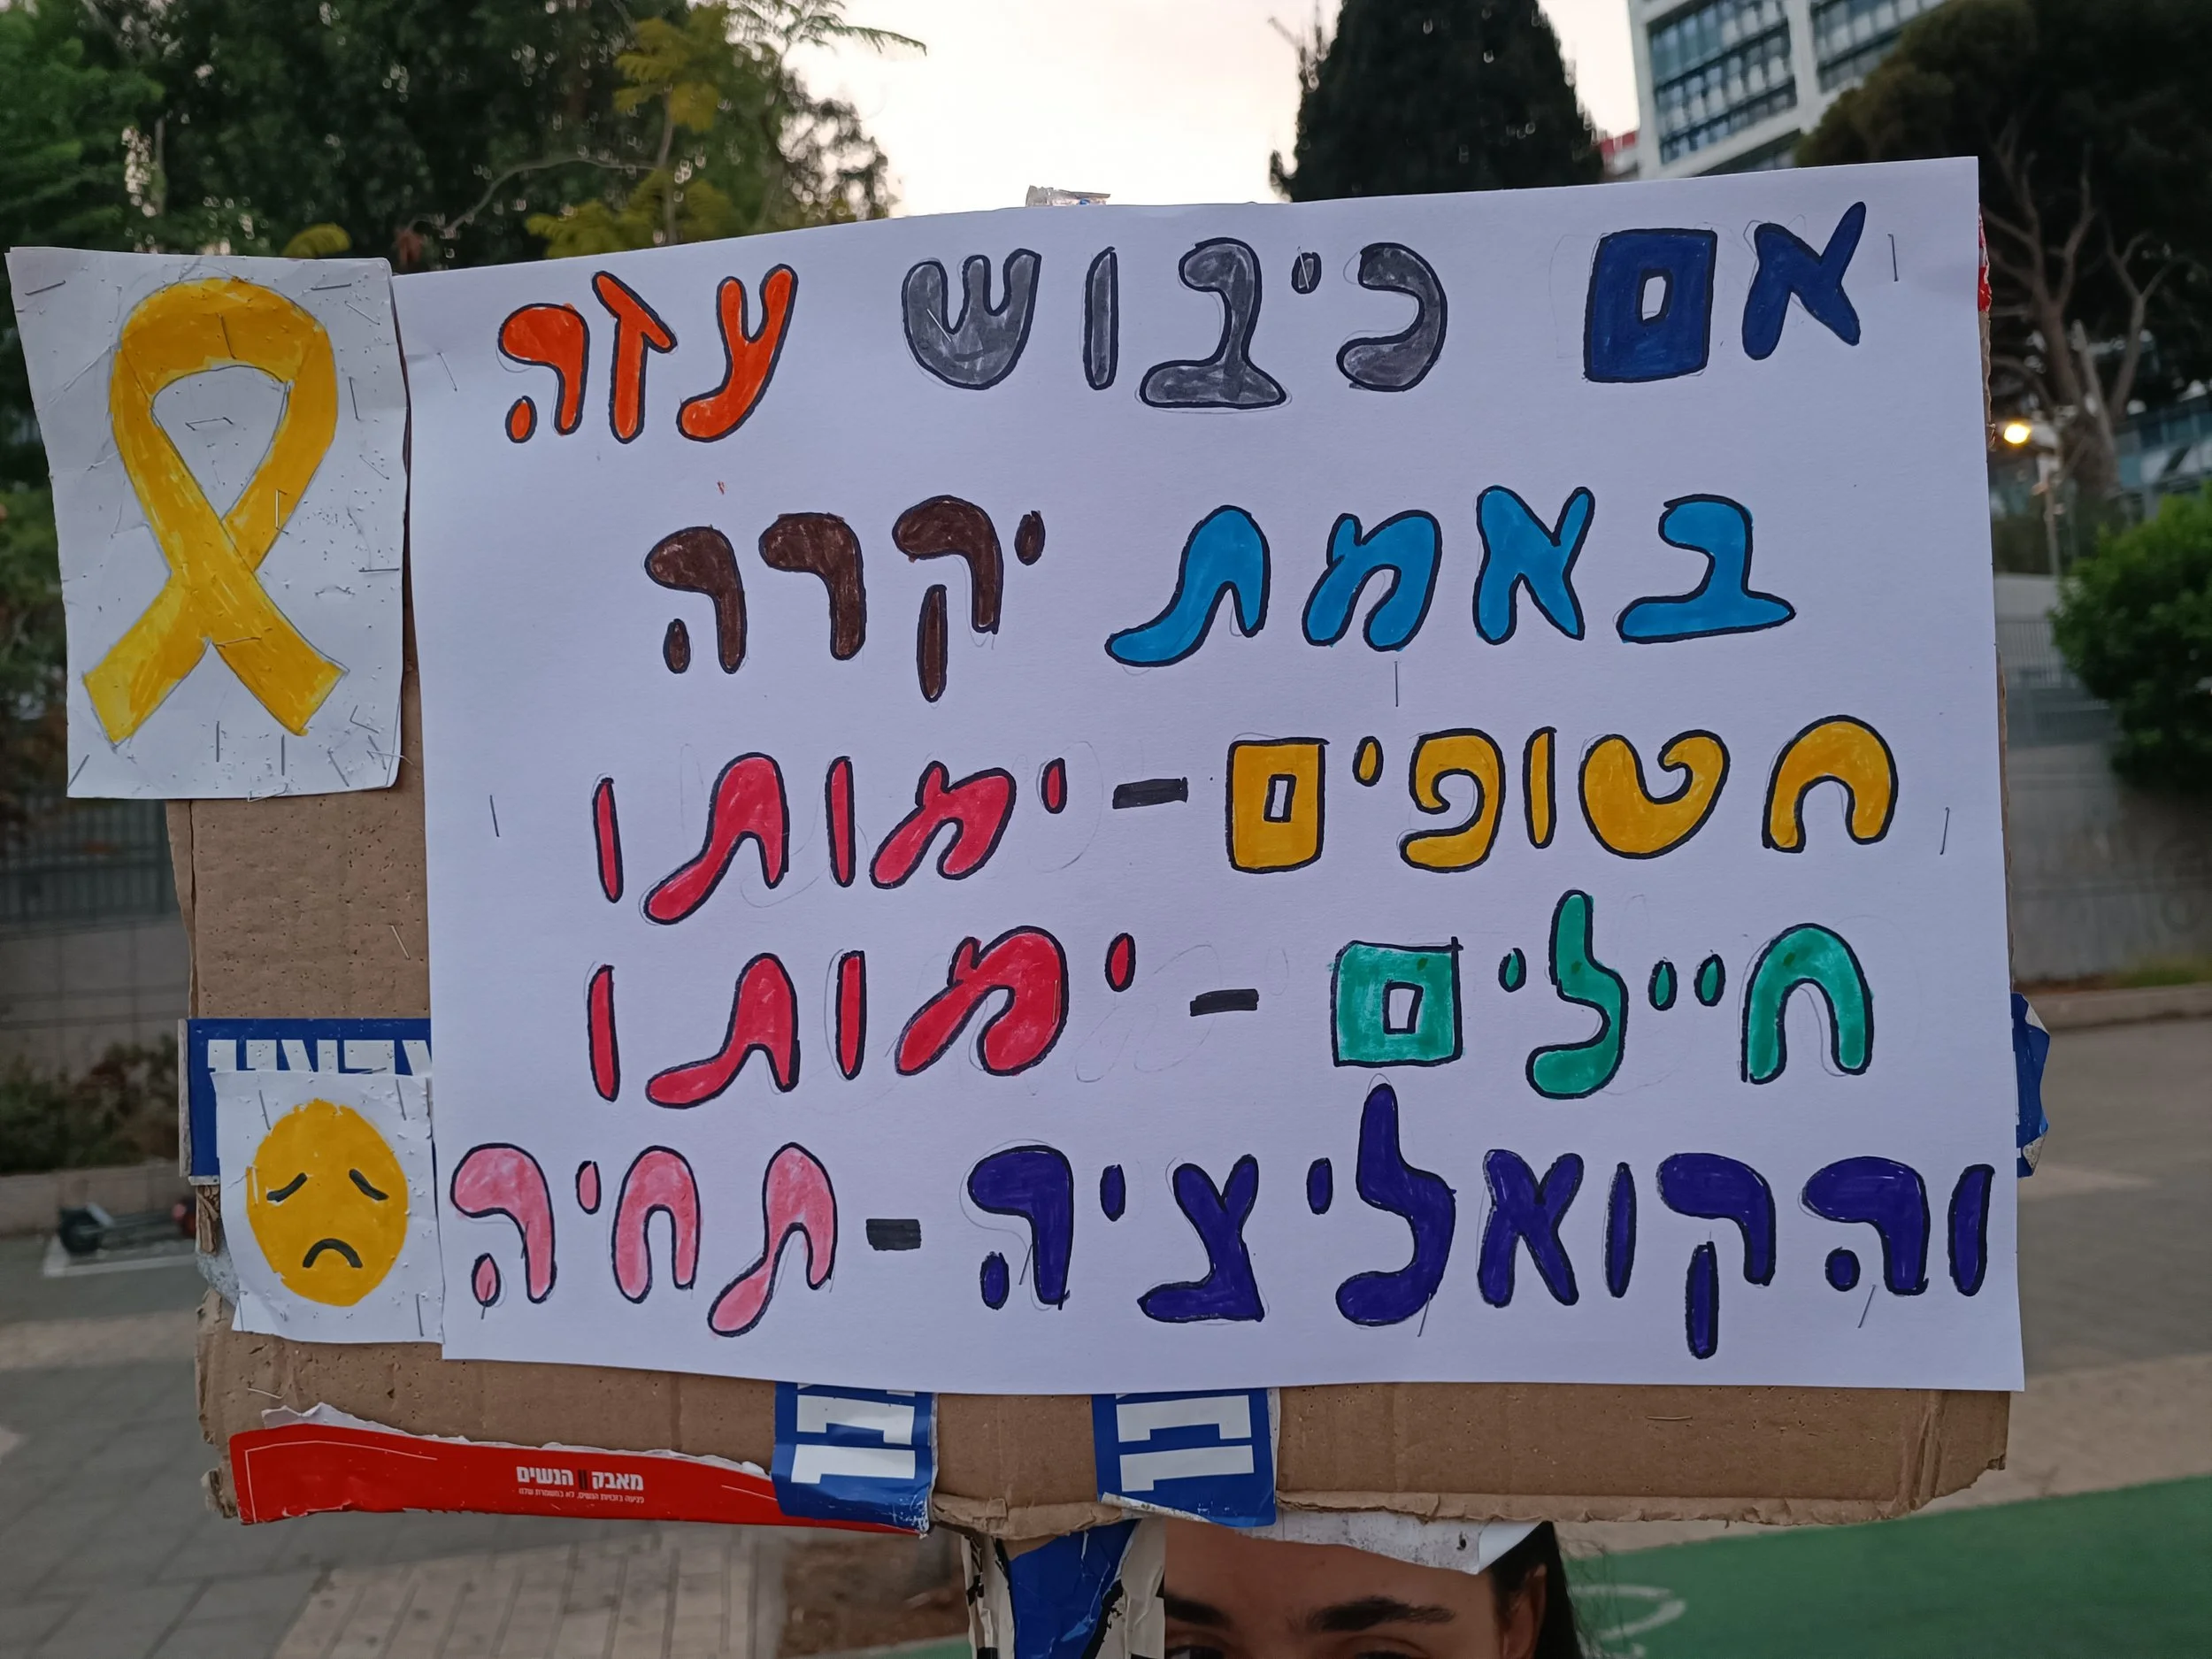 אם כיבוש עזה
באמת יקרה
חטופים - ימותו
חיילים - ימותו
והקואליציה - תחיה
מאבק הנשים